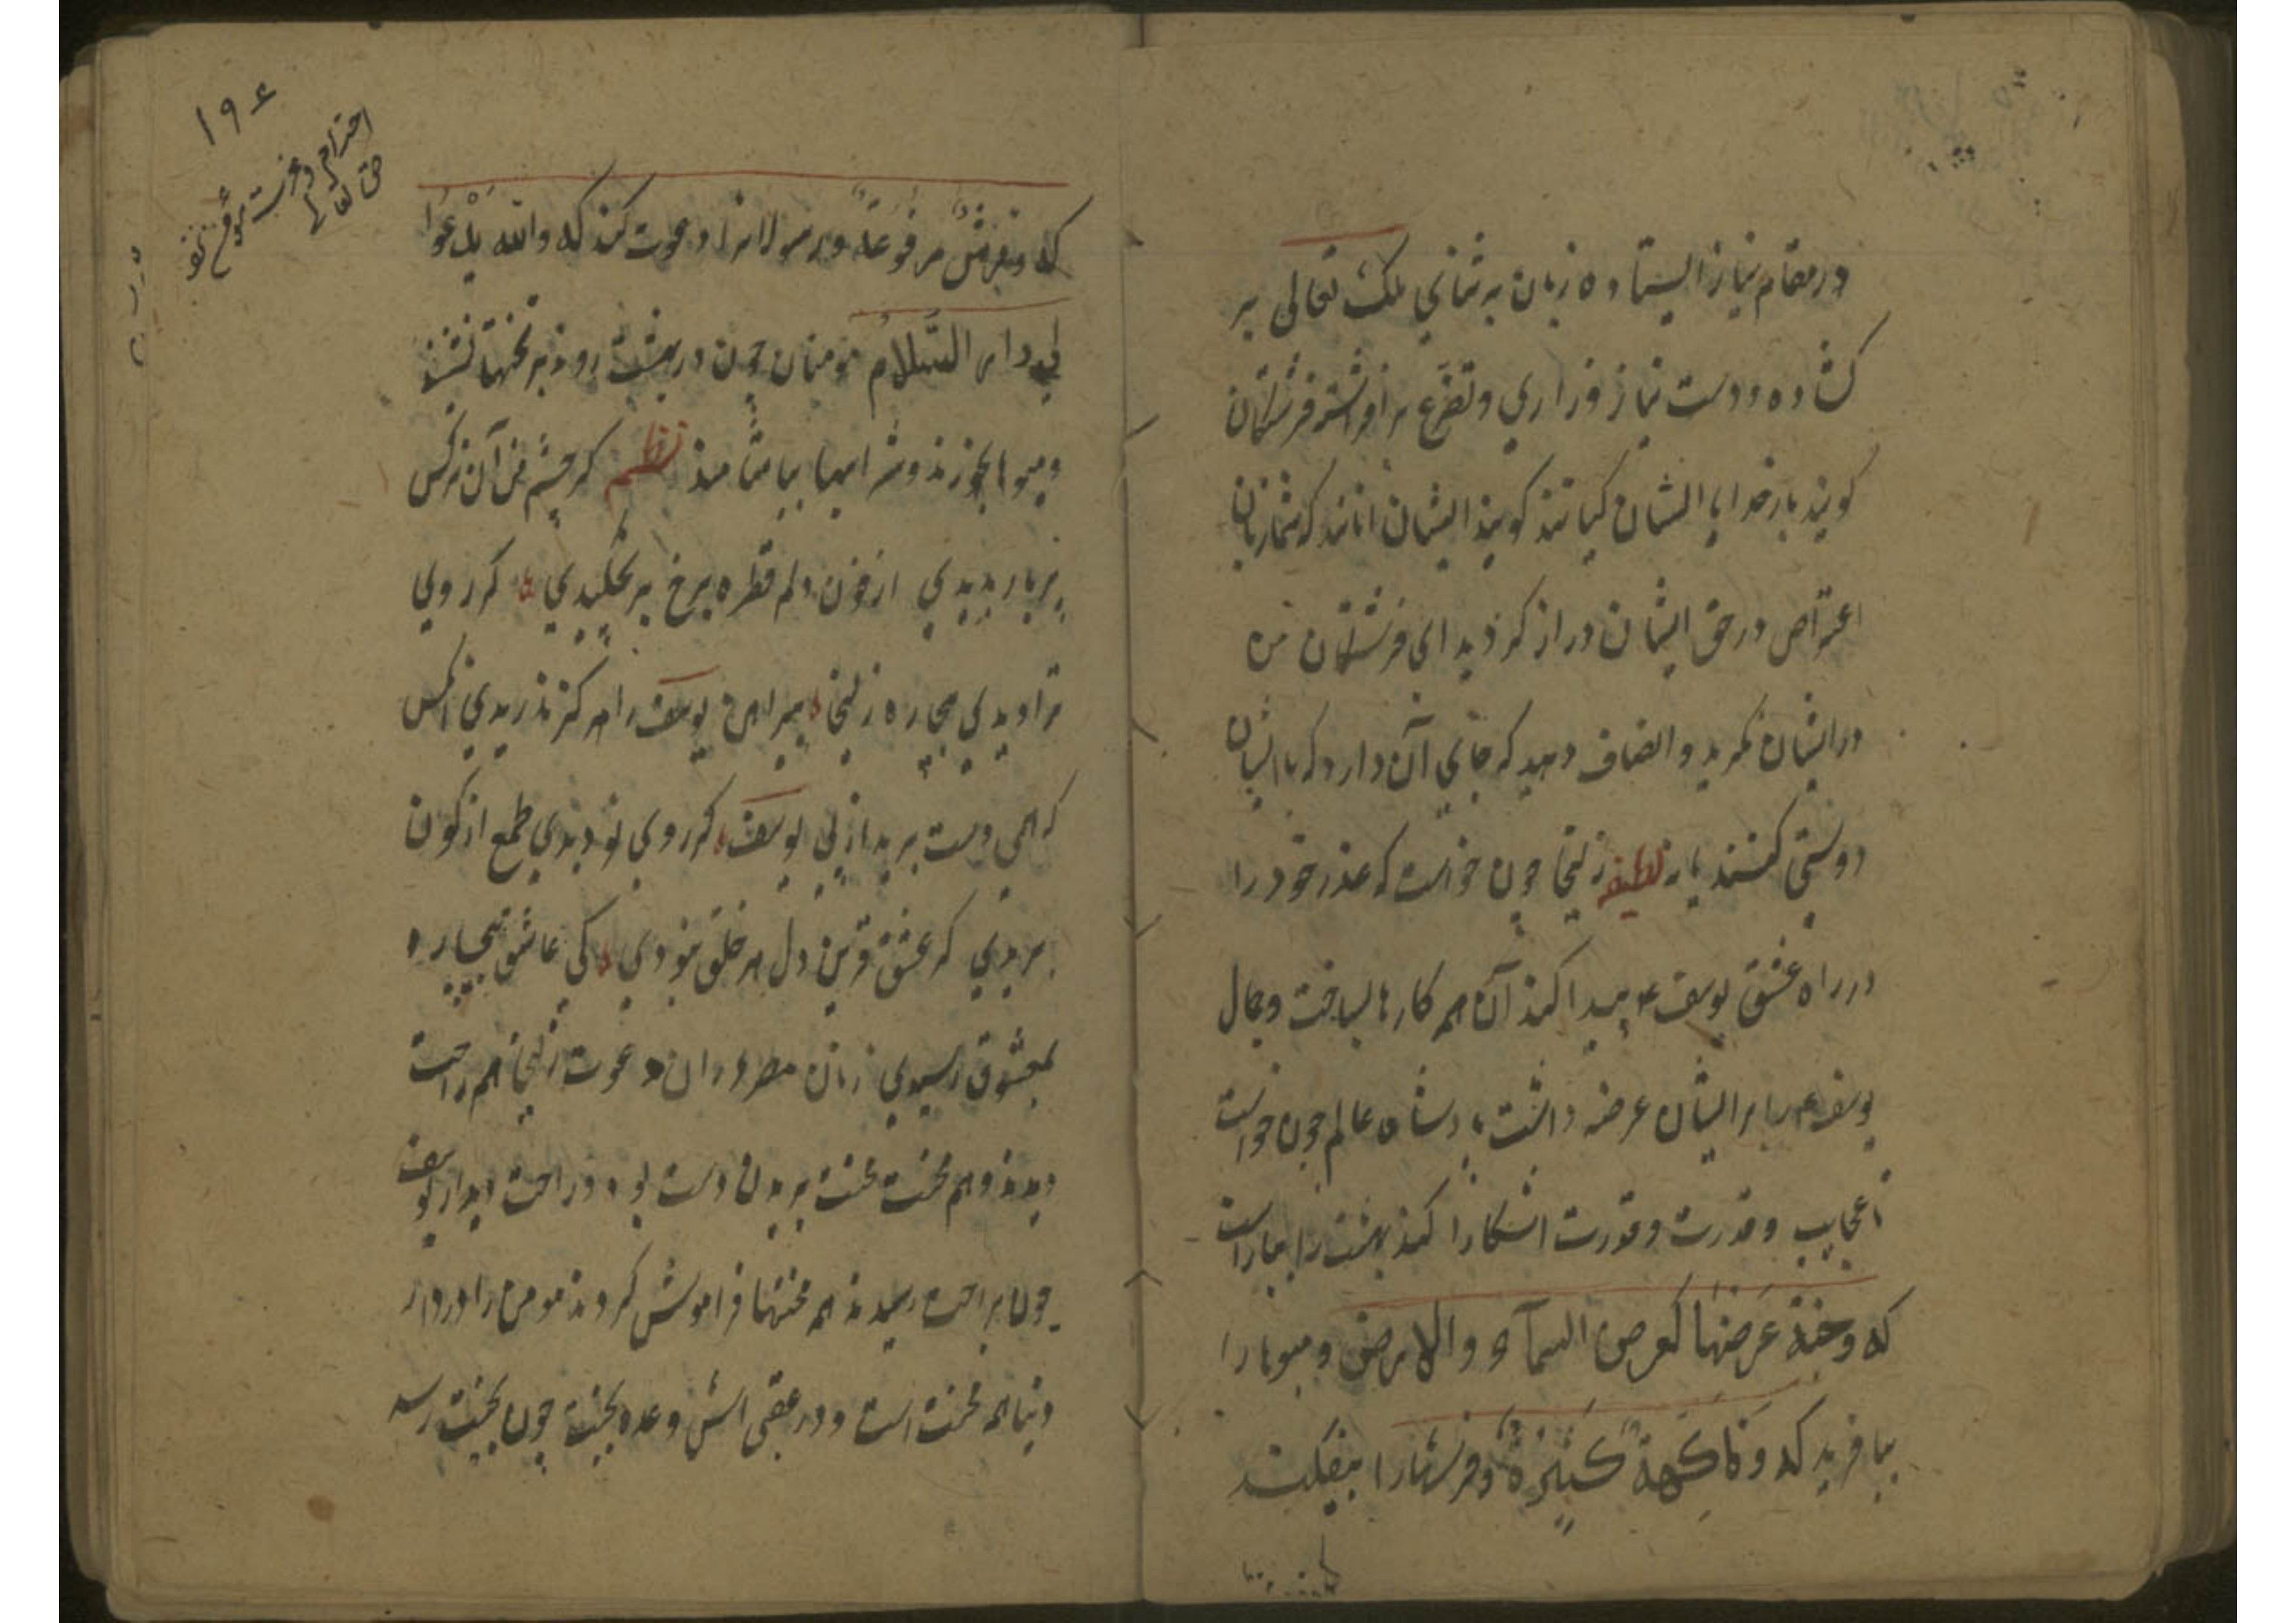 در مقام نیاز ایستاده زبان به ثنای ملک تعالی بر
کشاده و دست نیاز و زاری و تضرع برافراشته فرشتگان
کویند بار خدایا ایشان کیانند کویند ایشان انانند که شما زبان
اعتراض در حق ایشان دراز کردید ای فرشتگان من
در ایشان نکرید و انصاف دهید که جای آن دارد که با ایشان
دوستی کنند یا نه لطیفه زلیخا چون خواست که عذر خود را
در راه عشق یوسف ع پیدا کند آن همه کارها بساخت و جمال
یوسف ع را بر ایشان عرضه داشت پادشاه عالم چون خواست
تا عجایب و قدرت و قدرت اشکارا کند بهشت را بیاراست
که وجنة عَرضُهَا کعرض السمآء والارض و میوها را
بیافرید که وَفَاکِهَةٍ کَثِیرَةٍ و فرشها را بیفکند
۱۹۶
احترام و عزت
حق تعالی
که وفرشٍ مرفُوعَةٍ و بر رسولانرا دعوت کند که والله یَدْعُوا
الی دار السَّلامِ مومنان چون در بهشت روند بر تختها نشینند
و میوها بخورند و شرابها بیاشامند نظم کر چشم من آن نرکس
پربار بدیدی از خون دلم قطره برخ بر نچکیدی کر روی
ترا دیدی بیچاره زلیخا پیراهن یوسف را هرکز ندریدی انکس
که همی دست برید از پی یوسف کر روی تو دیدی طمع از کون
بریدی کر عشق قرین دل هر خلق نبودی کی عاشق بیچاره
بمعشوق رسیدی زنان مصر در ان دعوت زلیخا هم راحت
دیدند و هم محنت محنت بریدن دست بود و راحت دیدار یوسف
چون براحت رسیدند همه محنتها فراموش کردند مومن را در دار
دنیا همه محنت است و در عقبی اش وعده بجنت چون بجنت رسد